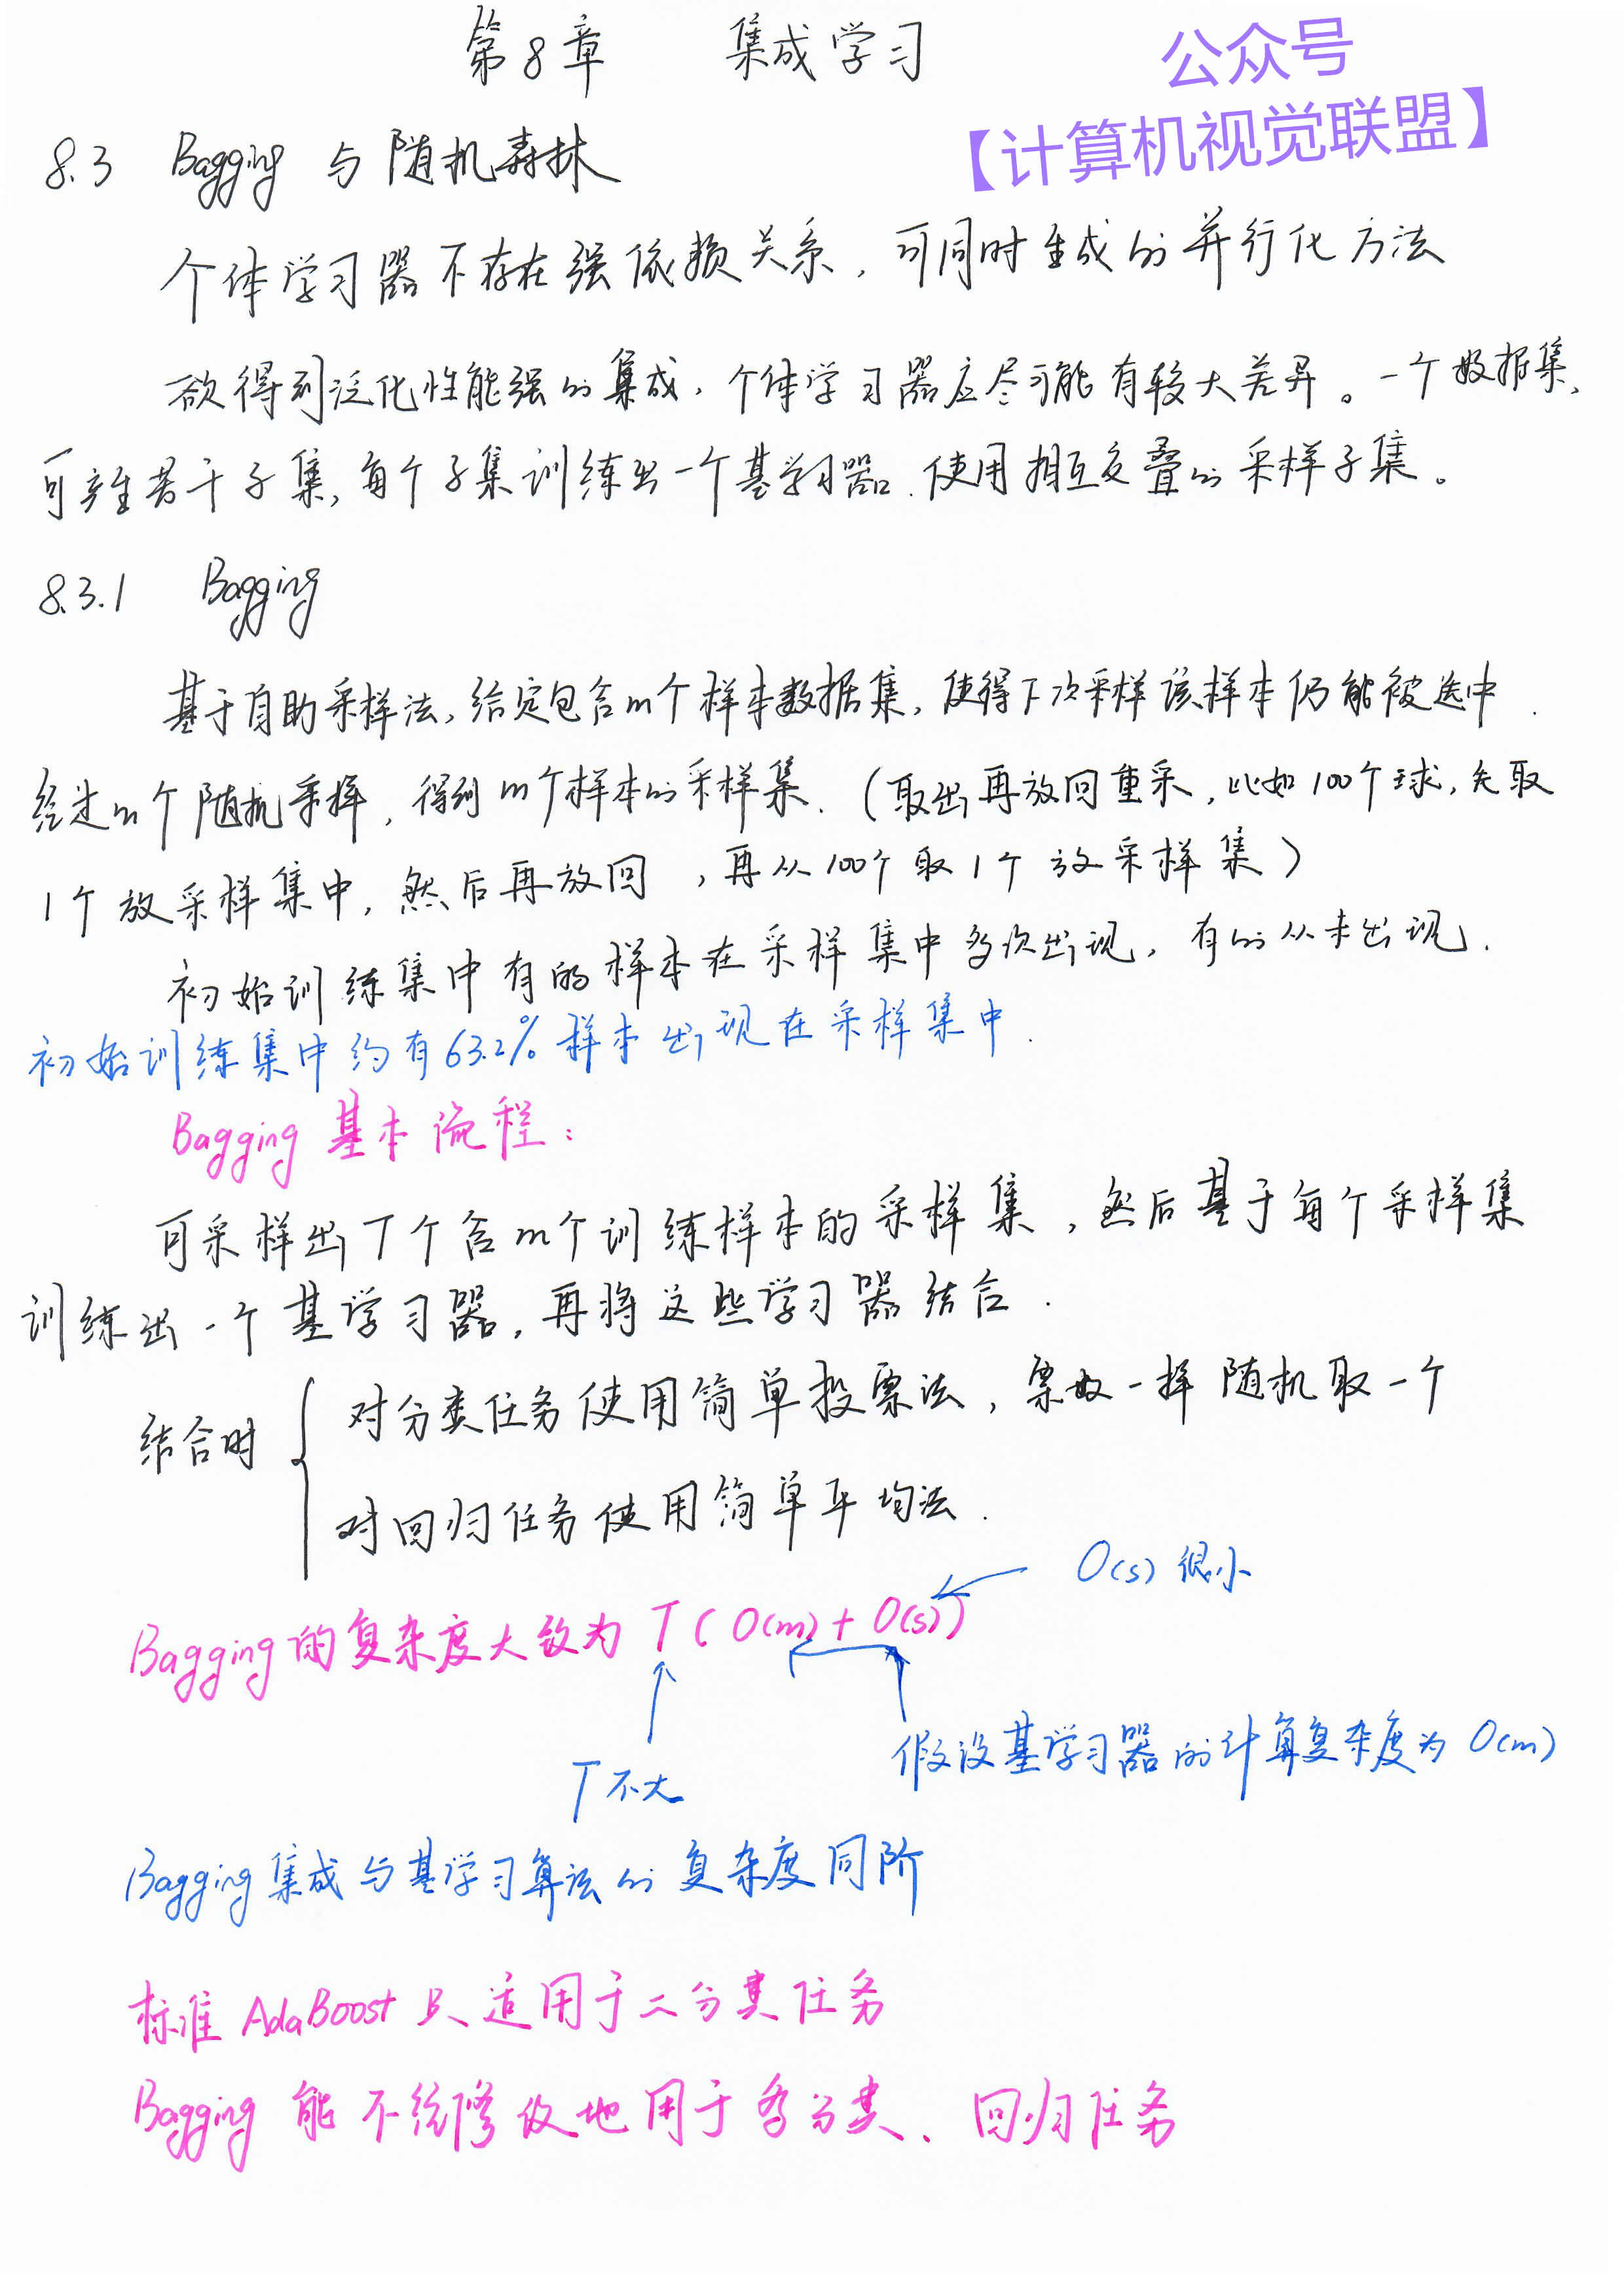 第8章 集成学习
公众号
【计算机视觉联盟】
8.3 Bagging 与随机森林
个体学习器不存在强依赖关系，可同时生成的并行化方法
欲得到泛化性能强的集成，个体学习器应尽可能有较大差异。一个数据集，
可产生若干子集，每个子集训练出一个基学习器.使用相互交叠的采样子集。
8.3.1 Bagging
基于自助采样法，给定包含m个样本数据集，使得下次采样该样本仍能被选中.
经过m个随机采样，得到m个样本的采样集.（取出再放回重采，比如100个球，先取
1个放采样集中，然后再放回，再从100个取1个放采样集）
初始训练集中有的样本在采样集中多次出现，有的从未出现.
初始训练集中约有63.2%样本出现在采样集中.
Bagging基本流程：
可采样出T个含m个训练样本的采样集，然后基于每个采样集
训练出一个基学习器，再将这些学习器结合.
结合时
对分类任务使用简单投票法，票数一样随机取一个
对回归任务使用简单平均法.
O(s)很小
Bagging的复杂度大致为 T(O(m)+O(s))
假设基学习器的计算复杂度为O(m)
T不大
Bagging集成与基学习算法的复杂度同阶
标准AdaBoost只适用于二分类任务
Bagging能不经修改地用于多分类、回归任务